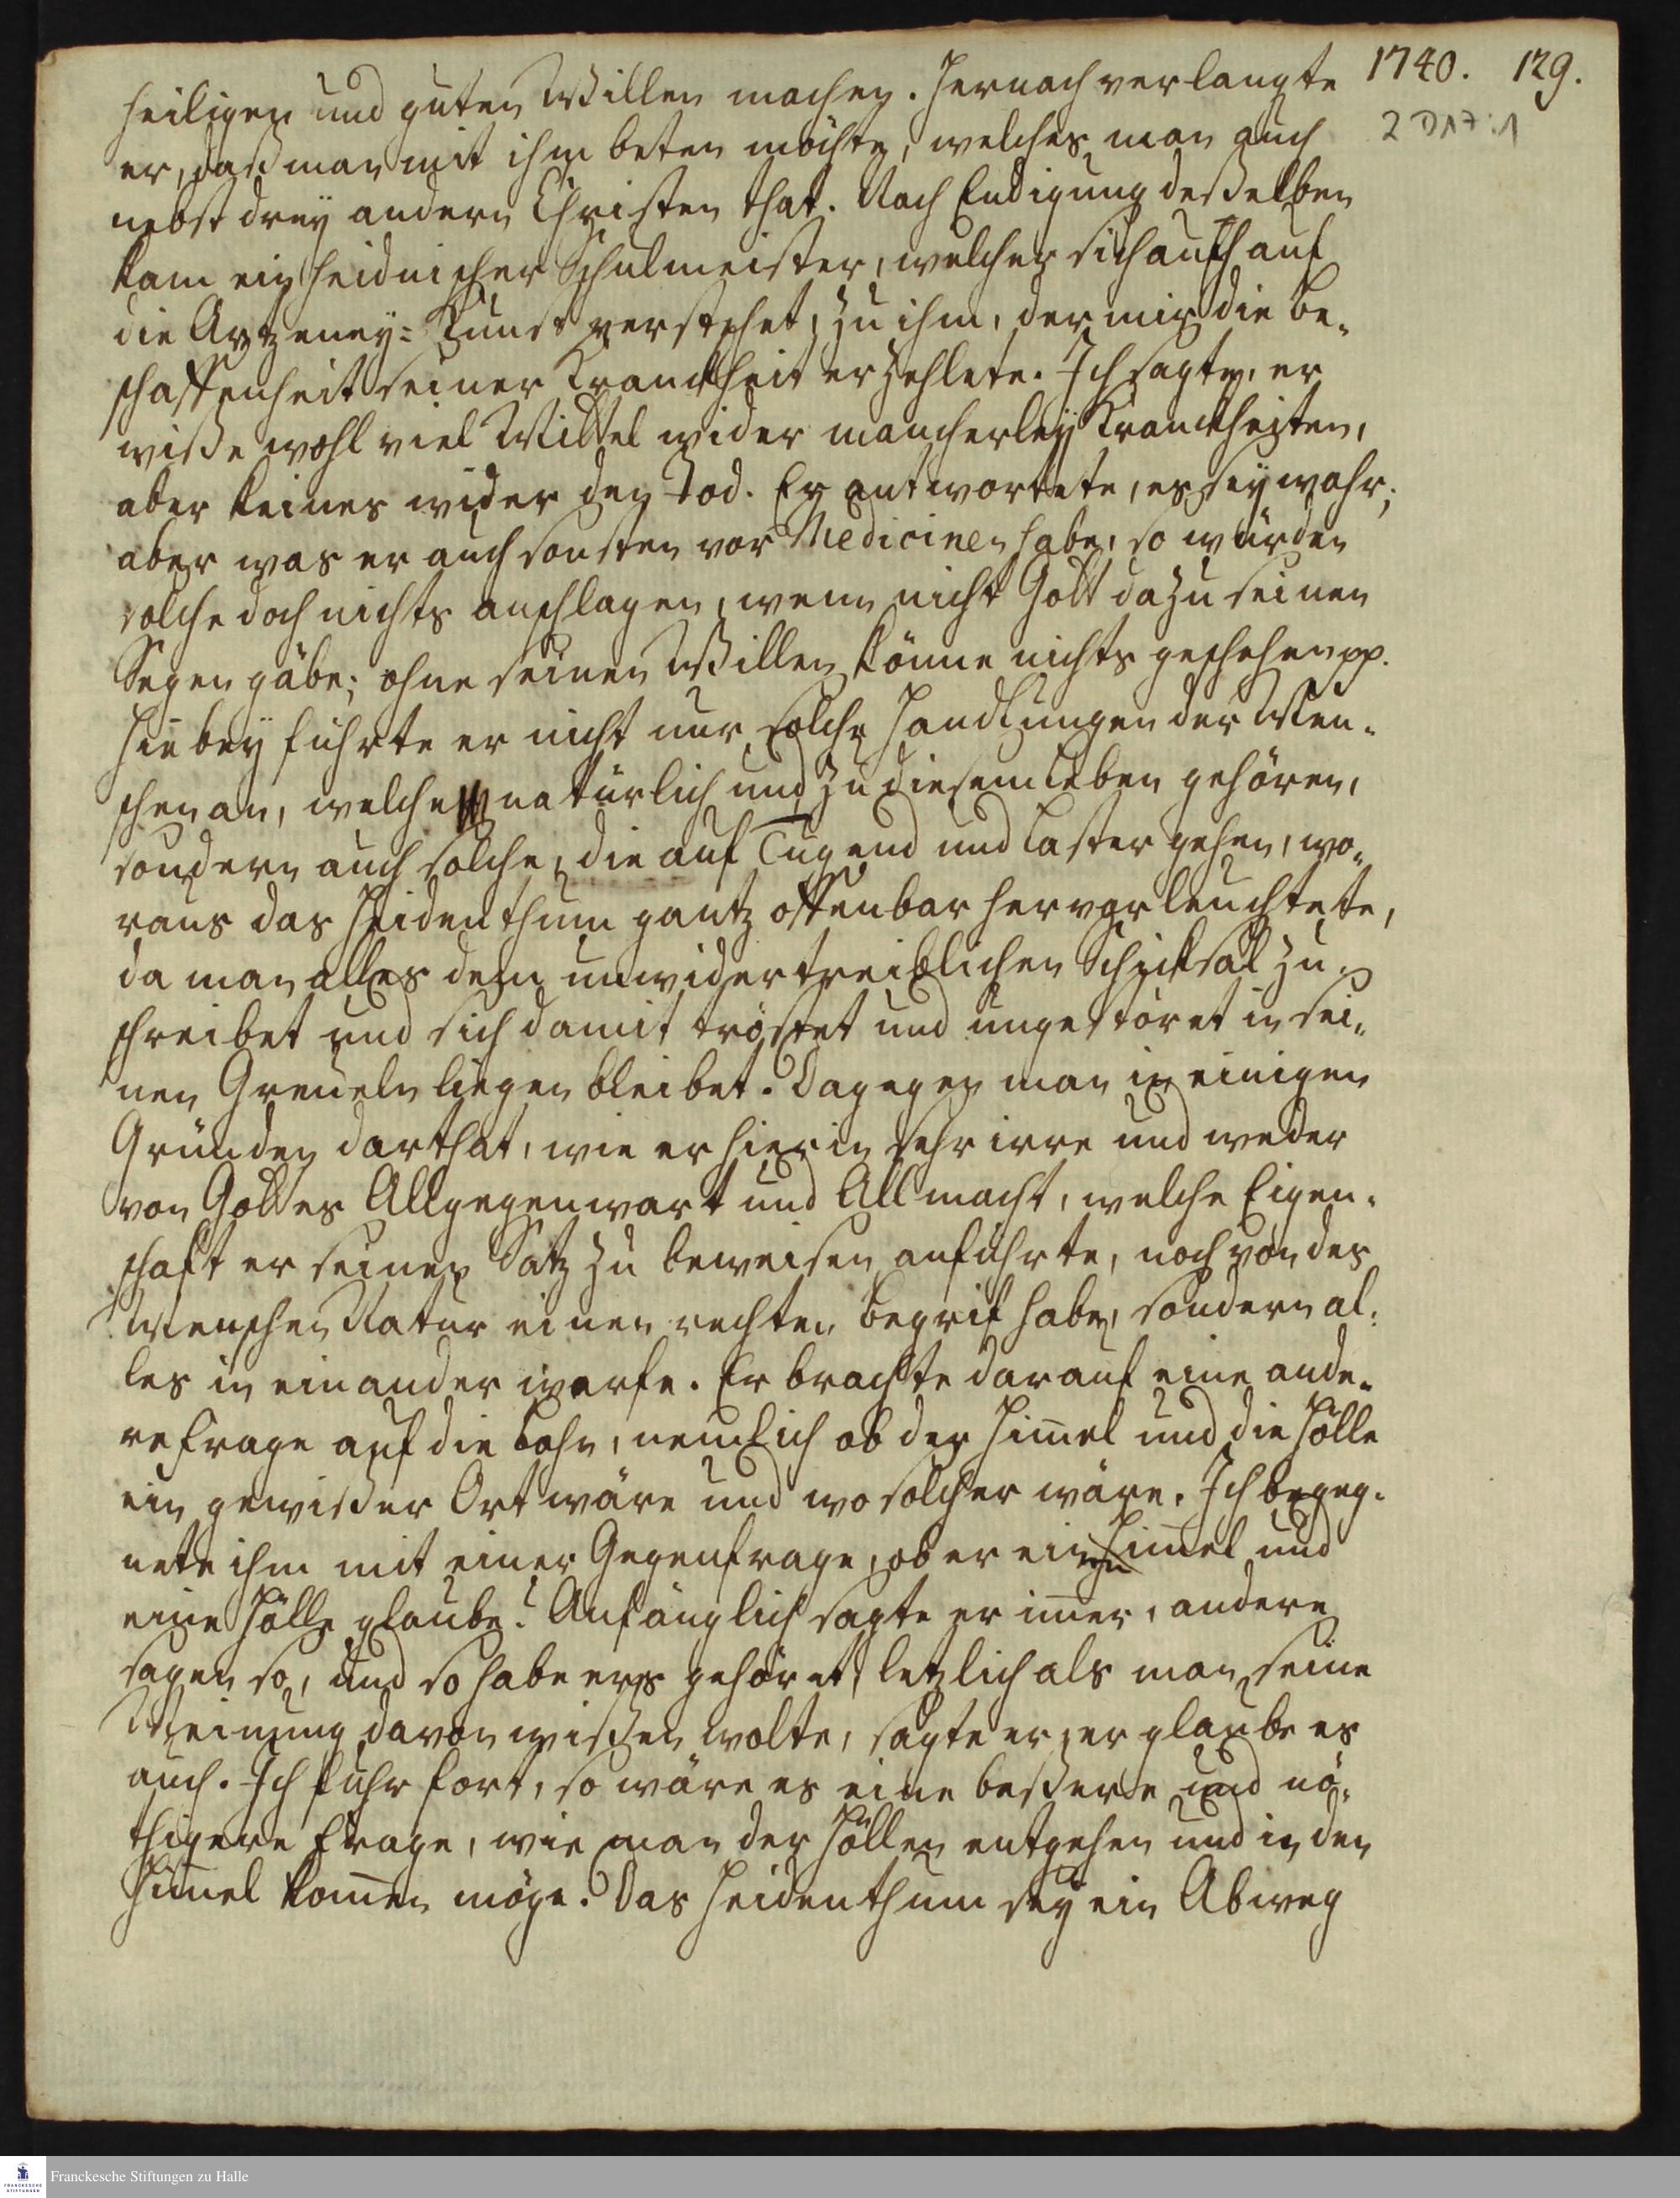 1740. 129.
2 D17:1
heiligen und guten Willen machen. Hernach verlangte
er, daß man mit ihm beten möchte, welches man auch
nebst drey andern Christen that. Nach Endigung deßelben
kam ein heidnischer Schulmeister, welcher sich auch auf
die Artzeney-Kunst verstehet, zu ihm, der mir die be-
schaffenheit seiner Kranckheit erzehlete. Ich sagte, er
wiße wohl viel Mittel wider mancherley Kranckheiten,
aber keines wider den Tod. Er antwortete, es sey wahr;
aber was er auch sonsten vor Medicinen habe, so würden
solche doch nichts anschlagen, wenn nicht Gott dazu seinen
Segen gäbe; ohne seinen Willen könne nichts geschehen pp.
Hiebey führte er nicht nur solche Handlungen der Men-
schen an, welche natürlich und zu diesem Leben gehören,
sondern auch solche, die auf Tugend und Laster gehen, wo-
raus das Heidenthum gantz offenbar hervorleuchtete,
da man alles dem unwidertreiblichen Schicksal zu-
schreibet und sich damit tröstet und ungestöret in sei-
nen Greueln liegen bleibet. Dagegen man in einigen
Gründen darthat, wie er hierin sehr irre und weder
von Gottes Allgegenwart und Allmacht, welche Eigen-
schaft er seinen Satz zu beweisen anführte, noch von der
Menschen Natur einen rechten Begrif habe, sondern al-
les in einander werfe. Er brachte darauf eine ande-
re Frage auf die Bahn, nemlich ob der Him̄el und die Hölle
ein gewißer Ort wäre und wo solcher wäre. Ich begeg-
nete ihm mit einer Gegenfrage, ob er einen Him̄el und
eine Hölle glaube? Anfänglich sagte er im̄er, andere
sagen so, und so habe ers gehöret, letzlich als man seine
Meinung davon wißen wolte, sagte er, er glaube es
auch. Ich fuhr fort, so wäre es eine beßere und nö-
thigere Frage, wie man der Höllen entgehen und in den
Him̄el kom̄en möge. Das Heidenthum sey ein Abweg
Franckesche Stiftungen zu Halle
FRANCKESCHE
STIFTUNGEN